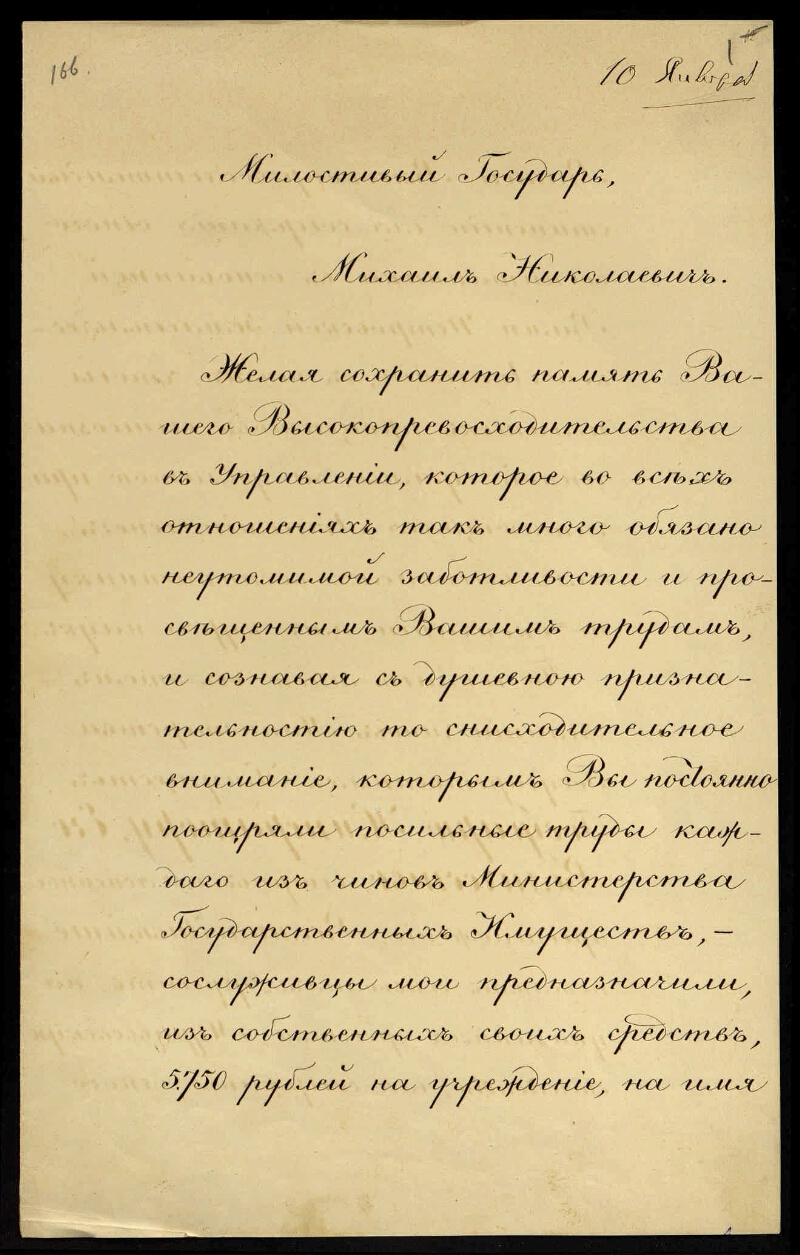 166.
1
10 Января
Милостивый Государь,
Михаилъ Николаевичъ.
Желая сохранить память Ва-
шего Высокопревосходительства
въ Управленіи, которое во всѣхъ
отношеніяхъ такъ много обязано
неутомимой заботливости и про-
свѣщеннымъ Вашимъ трудамъ,
и сознавая съ душевною призна-
тельностію то снисходительное
вниманіе, которымъ Вы постоянно
поощряли посильные труды каж-
даго изъ чиновъ Министерства
Государственныхъ Имуществъ, –
сослуживцы мои предназначили,
изъ собственныхъ своихъ средствъ,
5.750 рублей на учрежденіе, на имя